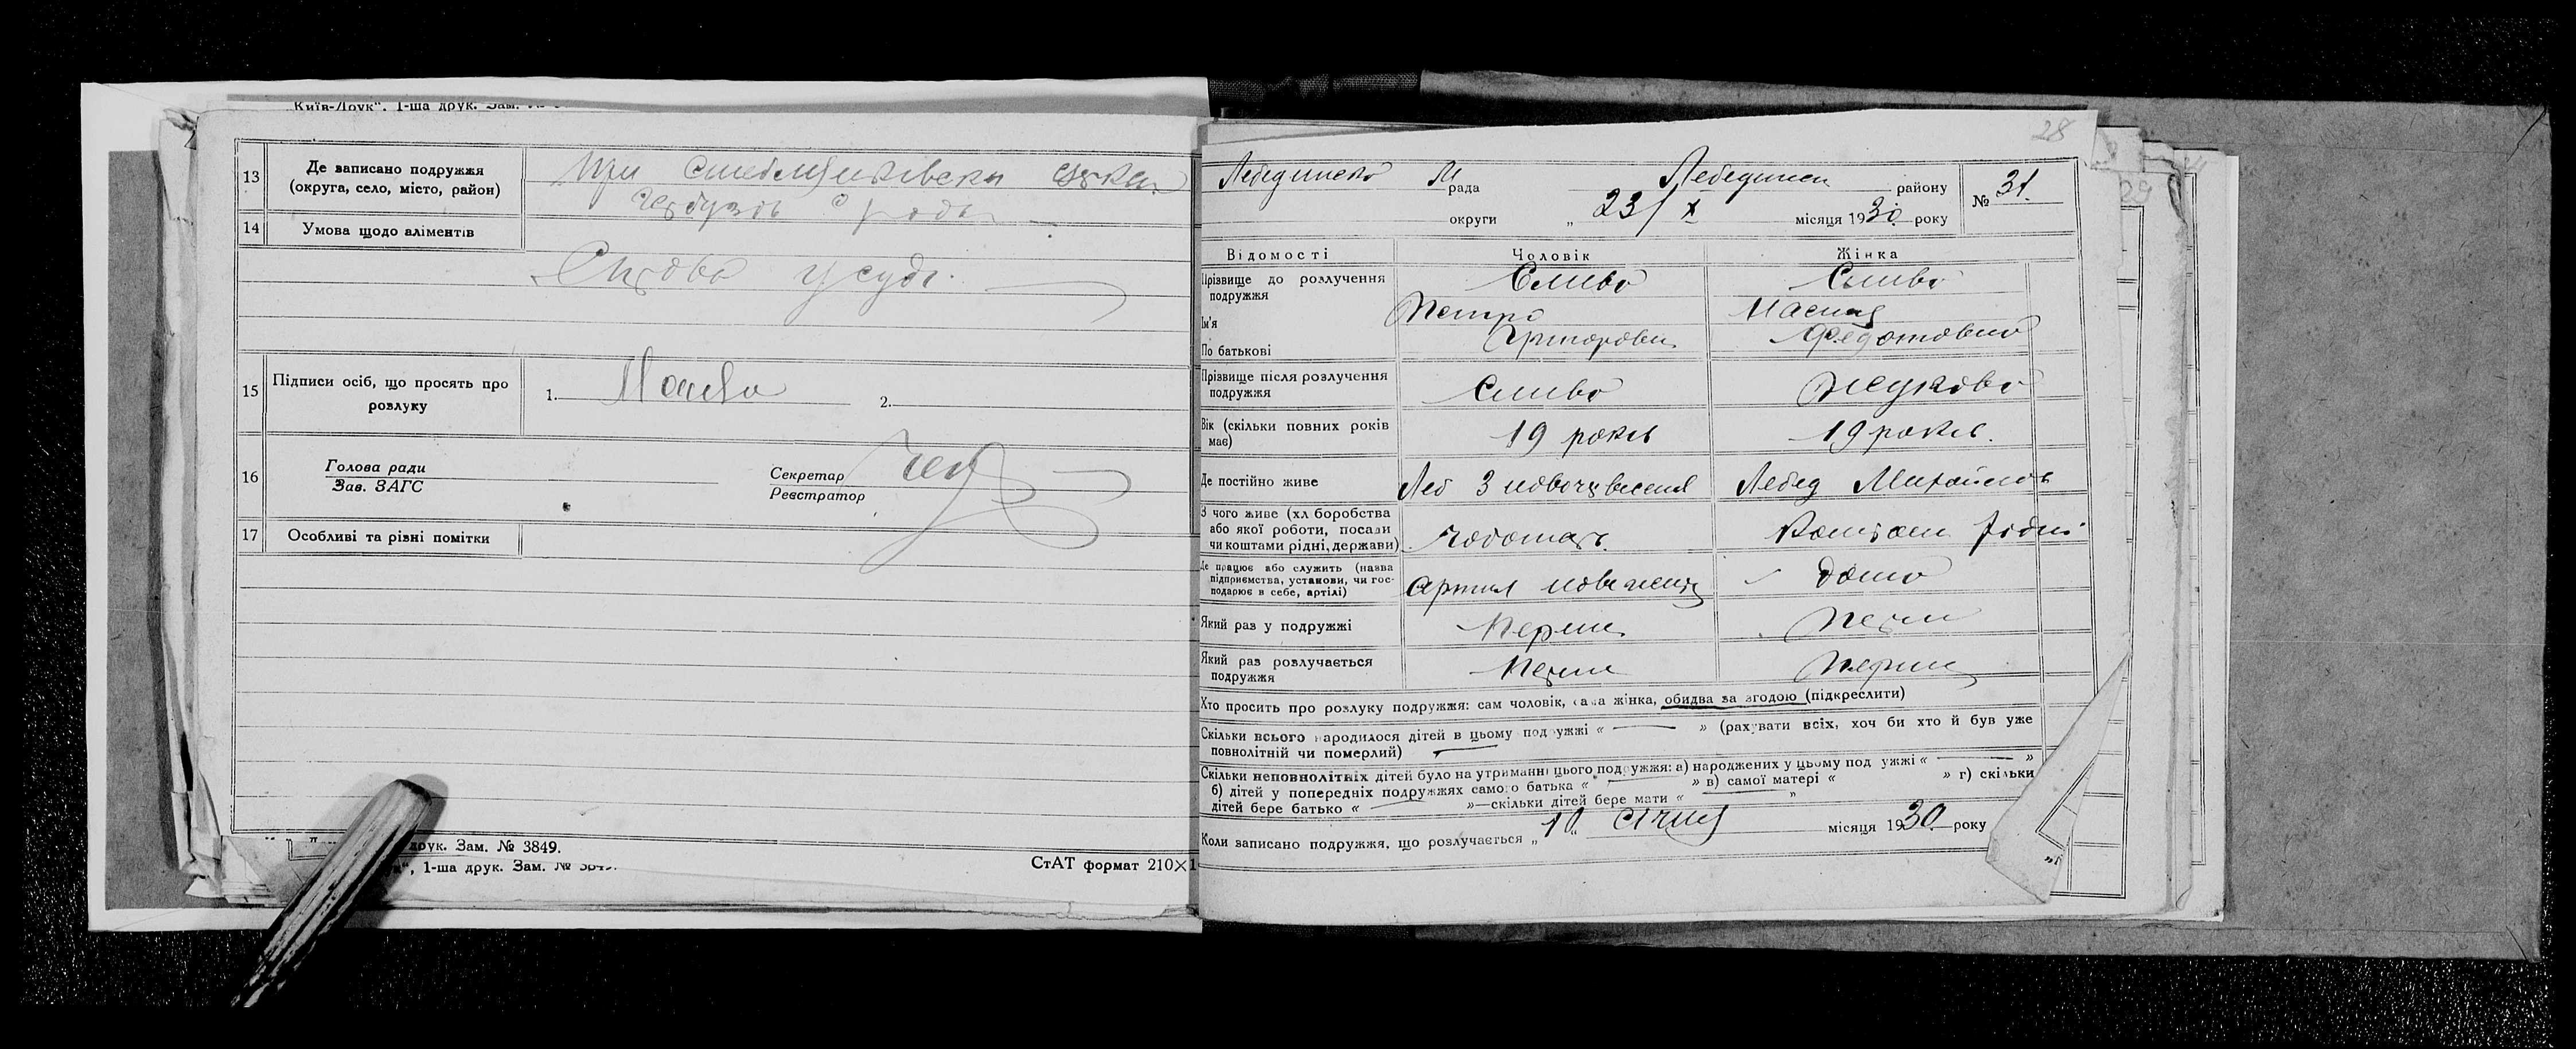 Київ-Друк", 1-ша друк. Зам. №
13 Де записано подружжя
(округа, село, місто, район)
При
14 Умова щодо аліментів
Справа у суді.
15 Підписи осіб, що просять про
розлуку
1. 2.
16 Голова ради
Зав. ЗАГС
Секретар
Реєстратор
17 Особливі та різні помітки
друк. Зам. № 3849.
1-ша друк. Зам. №
СтАТ формат 210×1
28
29
Лебединсько М рада Лебединськ району № 31.
округи „ 23/X місяця 1930 року
Відомості Чоловік Жінка
Прізвище до розлучення
подружжя
Слива Слива
Ім'я Петро
По батькові Григорович Федотовна
Прізвище після розлучення
подружжя
Слива Жукова
Вік (скільки повних років
має)
19 років 19 років.
Де постійно живе Леб Лебед
З чого живе (хліборобства
або якої роботи, посади
чи коштами рідні, держави)
Чоботарь. Коштом рідні
Де працює або служить (назва
підприємства, установи, чи гос-
подарює в себе, артілі)
Артил дома
Який раз у подружжі Перши Перши
Який раз розлучається
подружжя
Перши Перши
Хто просить про розлуку подружжя: сам чоловік, сама жінка, обидва за згодою (підкреслити)
Скільки всього народилося дітей в цьому подружжі « — » (рахувати всіх, хоч би хто й був уже
повнолітній чи померлий) —
Скільки неповнолітніх дітей було на утриманні цього подружжя: а) народжених у цьому подружжі « — »
б) дітей у попередніх подружжях самого батька « — » в) самої матері « » г) скільки
дітей бере батько « — »—скільки дітей бере мати « — »
Коли записано подружжя, що розлучається „ 10 " січня місяця 1930 року